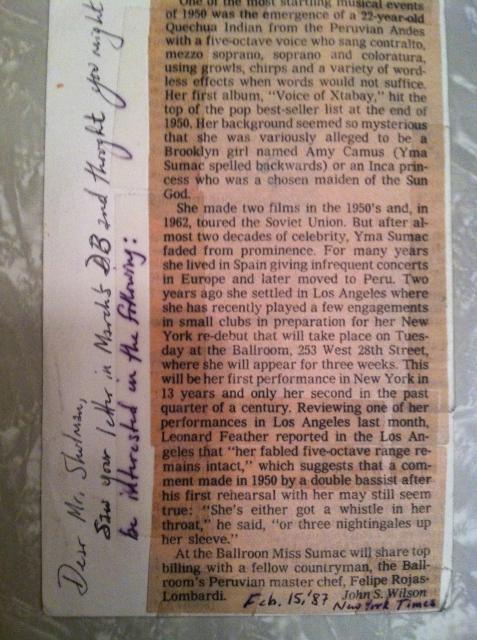 Dear Mr. Shulman,
Saw your letter in March's DB and thought you might
be interested in the following:
One of the most startling musical events
of 1950 was the emergence of a 22-year-old
Quechua Indian from the Peruvian Andes
with a five-octave voice who sang contralto,
mezzo soprano, soprano and coloratura,
using growls, chirps and a variety of word-
less effects when words would not suffice.
Her first album, "Voice of Xtabay," hit the
top of the pop best-seller list at the end of
1950. Her background seemed so mysterious
that she was variously alleged to be a
Brooklyn girl named Amy Camus (Yma
Sumac spelled backwards) or an Inca prin-
cess who was a chosen maiden of the Sun
God.
She made two films in the 1950's and, in
1962, toured the Soviet Union. But after al-
most two decades of celebrity, Yma Sumac
faded from prominence. For many years
she lived in Spain giving infrequent concerts
in Europe and later moved to Peru. Two
years ago she settled in Los Angeles where
she has recently played a few engagements
in small clubs in preparation for her New
York re-debut that will take place on Tues-
day at the Ballroom, 253 West 28th Street,
where she will appear for three weeks. This
will be her first performance in New York in
13 years and only her second in the past
quarter of a century. Reviewing one of her
performances in Los Angeles last month,
Leonard Feather reported in the Los An-
geles that "her fabled five-octave range re-
mains intact," which suggests that a com-
ment made in 1950 by a double bassist after
his first rehearsal with her may still seem
true: "She's either got a whistle in her
throat," he said, "or three nightingales up
her sleeve."
At the Ballroon Miss Sumac will share top
billing with a fellow countryman, the Ball-
room's Peruvian master chef, Felipe Rojas-
Lombardi. John S. Wilson
Feb. 15, '87 New York Times